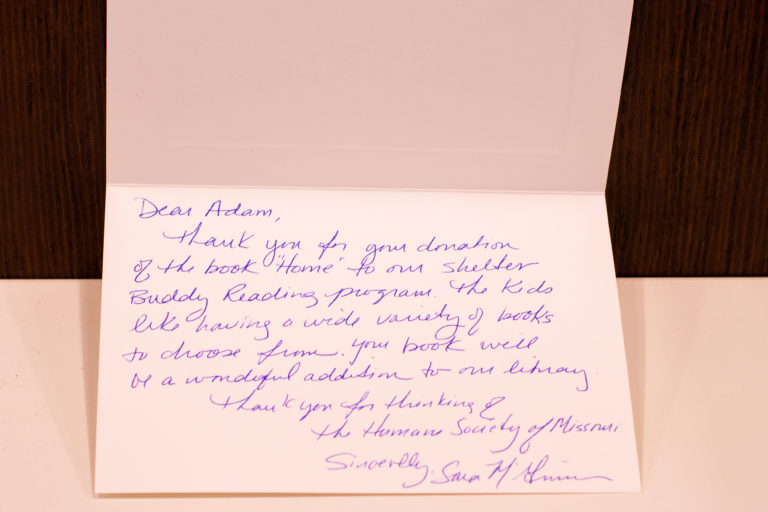 Dear Adam,
Thank you for your donation
of the book "Home" to our shelter
Buddy Reading program. The kids
like having a wide variety of books
to choose from. Your book will
be a wonderful addition to our library.
Thank you for thinking of
the Humane Society of Missouri
Sincerely, Sara M